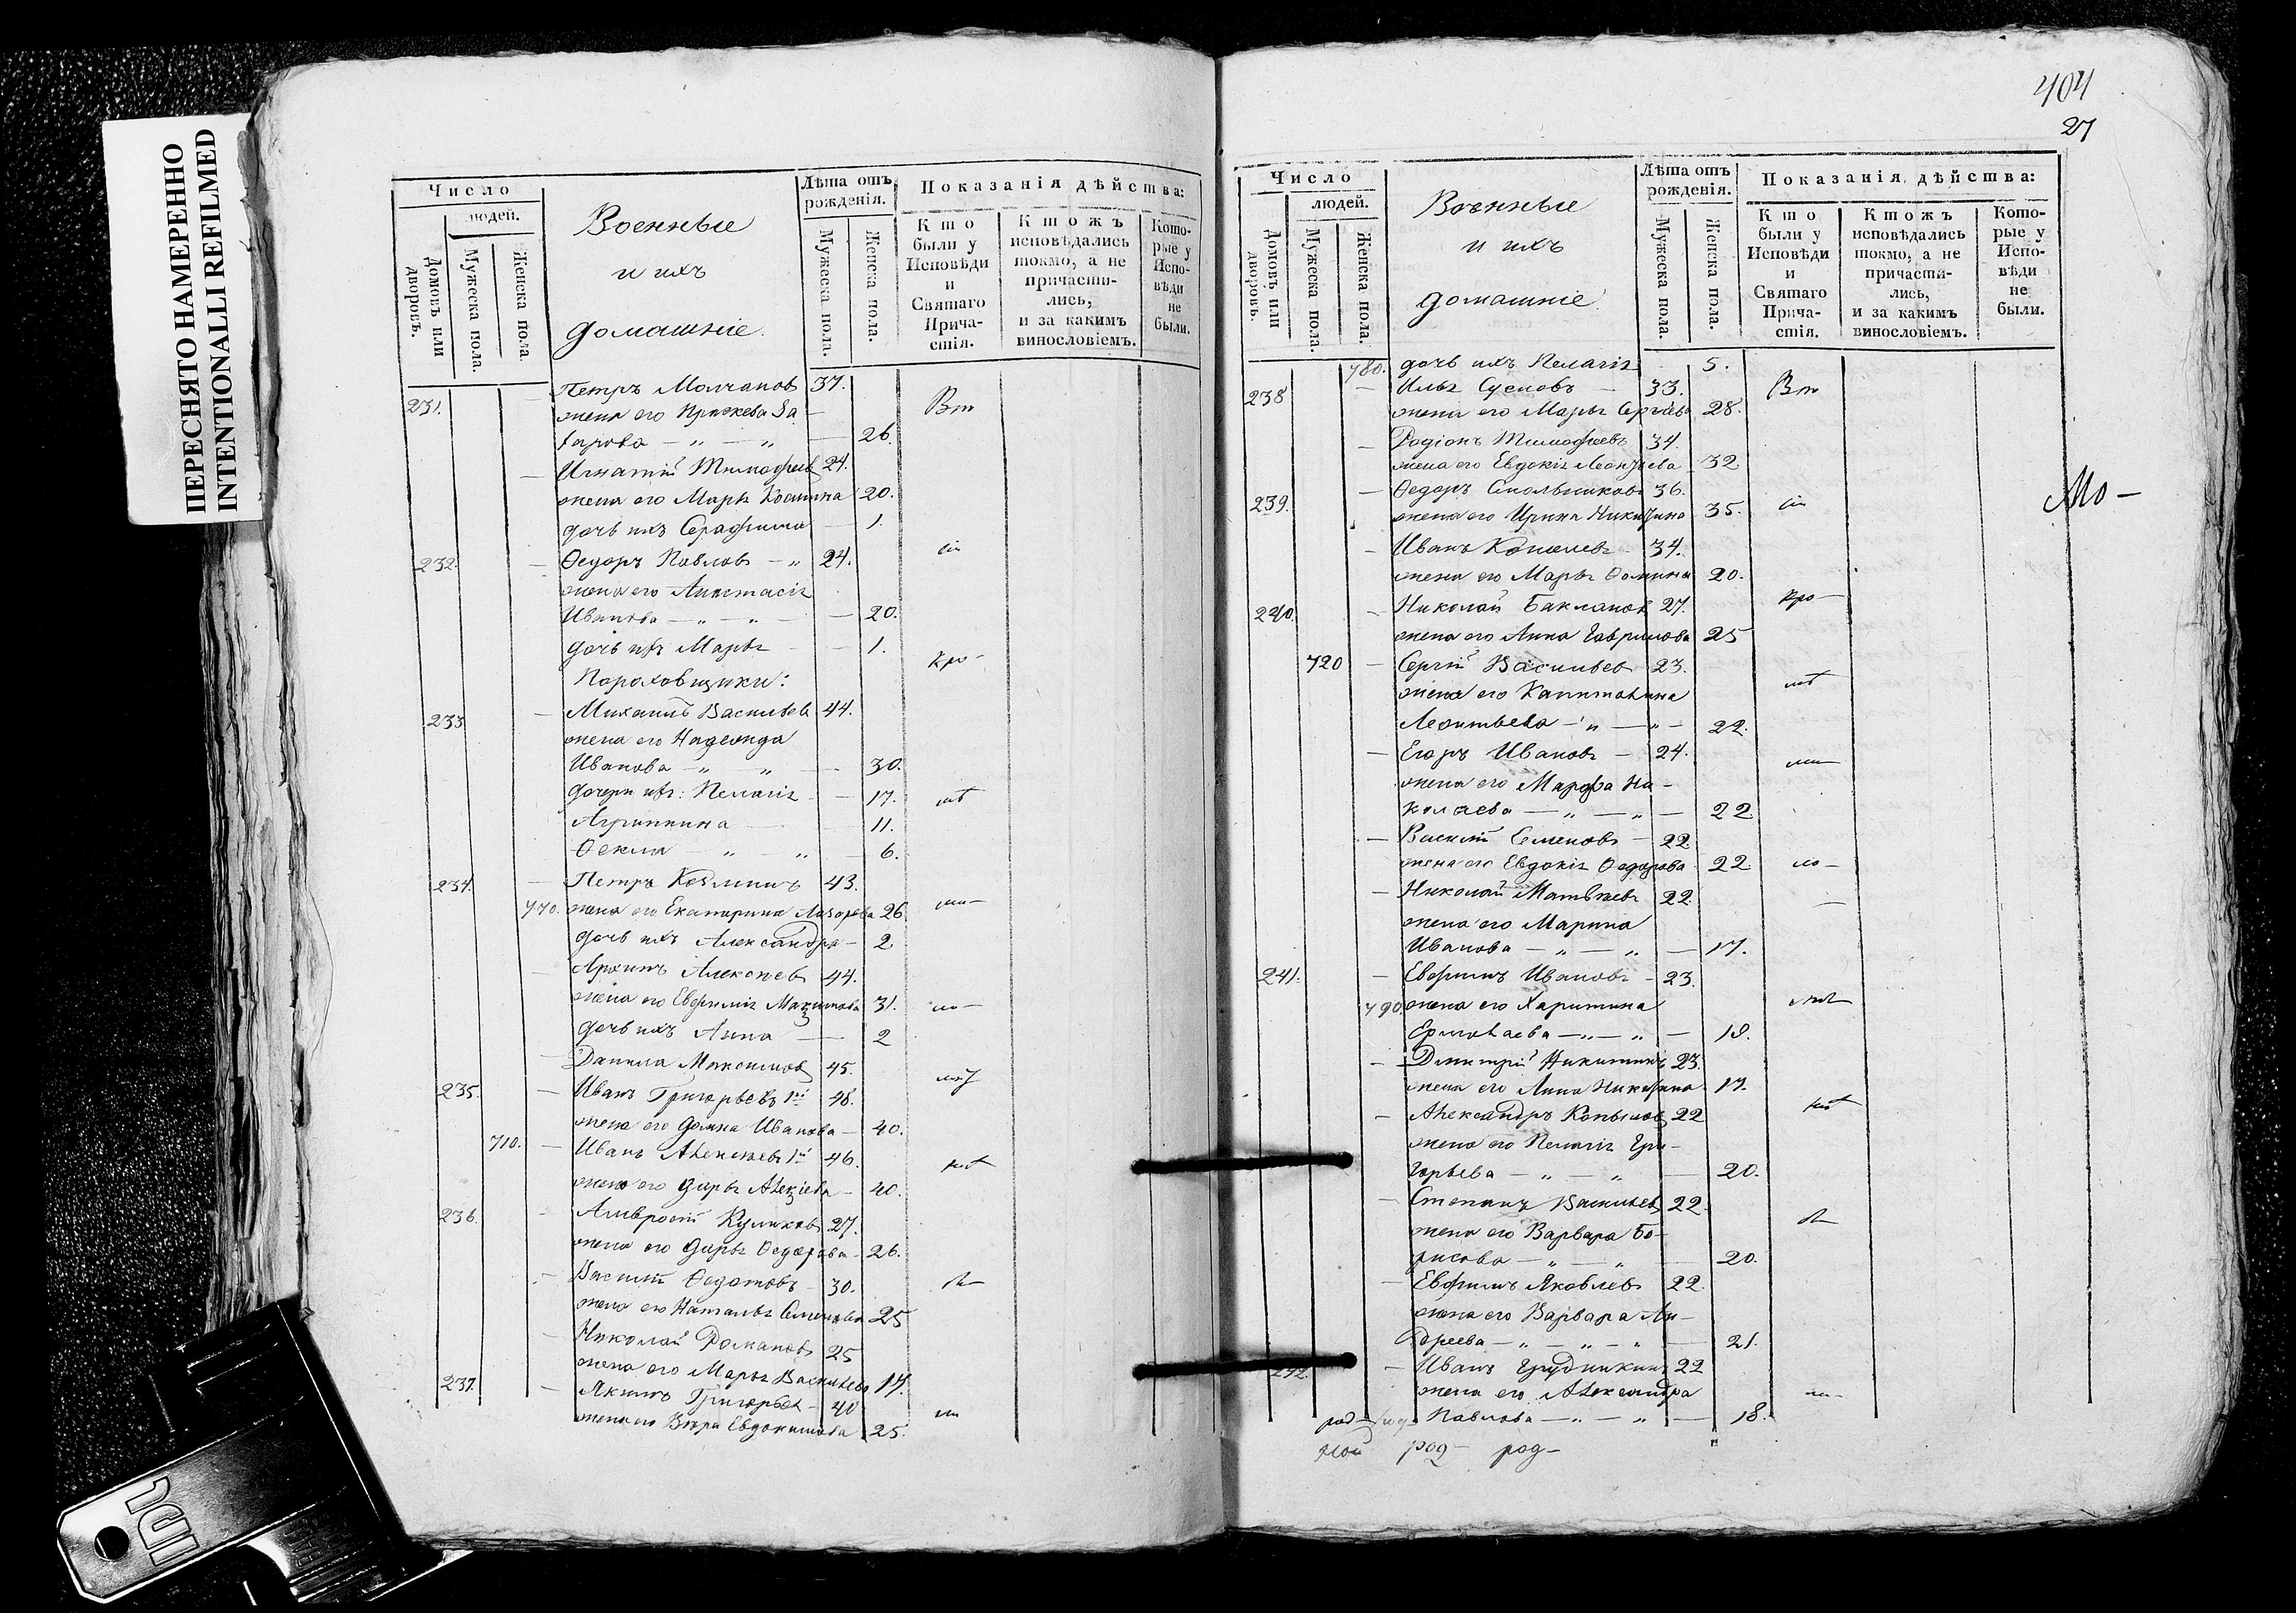 ПЕРЕСНЯТО НАМЕРЕННО
INTENTIONALLI REFILMED
Число
людей.
Домовъ или дворовъ.
Мужеска пола.
Женска пола.
Военные
и ихъ
домашніе.
Лѣта отъ рожденія.
Мужеска пола.
Женска пола.
Показанія дѣйства:
Кто были у Исповѣди и Святаго Причастія.
Ктожъ исповѣдались токмо, а не причастились, и за какимъ винословіемъ.
Которые у Исповѣди не были.
231. — Петръ Молчановъ 37.
жена его За
харова — „ — „ — 26. Вт
— Игнатій Тимофеевъ 24.
жена его Марья Козмина 20.
дочь ихъ Серафима — 1.
232. — Ѳедоръ Павловъ — „ 24.
жена его Анастасія
Иванова — „ — „ — 20.
дочь ихъ Марья — 1.
Пороховщики:
233 — Михаилъ Васильевъ 44.
жена его Надежда
Иванова — „ — „ — 30.
дочери ихъ: Пелагія — 17.
Агрипина — 11.
Ѳекла — „ — „ — 6.
234. — Петръ 43.
770. жена его Екатерина Лазарева 26
дочь ихъ Александра — 2
— Архипъ Алексеевъ 44.
жена его Евфимія Максимова 31.
дочь ихъ Анна — 2
— Данила Максимовъ 45.
235. — Иванъ Григорьевъ 1й 48.
жена его Домна Иванова — 40.
710. — Иванъ Алексеевъ 1й 46.
жена его Дарья Алексіева — 40.
236. — Амвросій Куликовъ 27.
жена его Дарья Ѳедорова — 26.
— Василій Ѳедотовъ 30.
жена его Наталья Семенова 25
— Николай Романовъ 25
жена его Марья Васильева 17.
237. — Якимъ Григорьевъ — 40
жена его Вѣра Евдокимова 25.
404
27
Число
людей.
Домовъ или дворовъ.
Мужеска пола.
Женска пола.
Военные
и ихъ
домашніе.
Лѣта отъ рожденія.
Мужеска пола.
Женска пола.
Показанія дѣйства:
Кто были у Исповѣди и Святаго Причастія.
Ктожъ исповѣдались токмо, а не причастились, и за какимъ винословіемъ.
Которые у Исповѣди не были.
780. дочь ихъ Пелагія 5.
238 — Илья — 33. Вт
жена его Марья Сергіева 28.
— Родіонъ Тимофеевъ 34.
жена его Евдокія Леонтьева 32
239. — Ѳедоръ Смольниковъ 36.
жена его Ирина Никитина 35.
— Иванъ 34.
жена его Марья Ѳомина 20.
240. — Николай Баклановъ 27.
жена его Анна Гаврилова 25
720 — Сергій Васильевъ 23.
жена его Капитолина
Леонтьева — „ — „ — 22.
— Егоръ Ивановъ — 24.
жена его Марфа Ни-
колаева — „ — „ — 22
— Василій Семеновъ — 22
жена его Евдокія Ѳедорова 22
— Николай Матвѣевъ 22
жена его Марина
Иванова — „ — „ — 17.
241. — Евфимъ Ивановъ — 23.
790. жена его Харитина
Ермолаева — „ — „ — 18.
— Дмитрій Никитинъ 23.
жена его Анна Никитина 17.
— Александръ Копыловъ 22
жена его Пелагія Гри-
горьева — „ — „ — 20.
— Степанъ Васильевъ 22.
жена его Варвара Бо-
рисова — „ — „ — 20.
— Евфимъ Яковлевъ 22.
жена его Варвара Ан-
дреева — „ — „ — „ — 21.
242. — Иванъ Грудинкинъ 22
жена его Александра
Павлова — „ — „ — 18.
род — род —